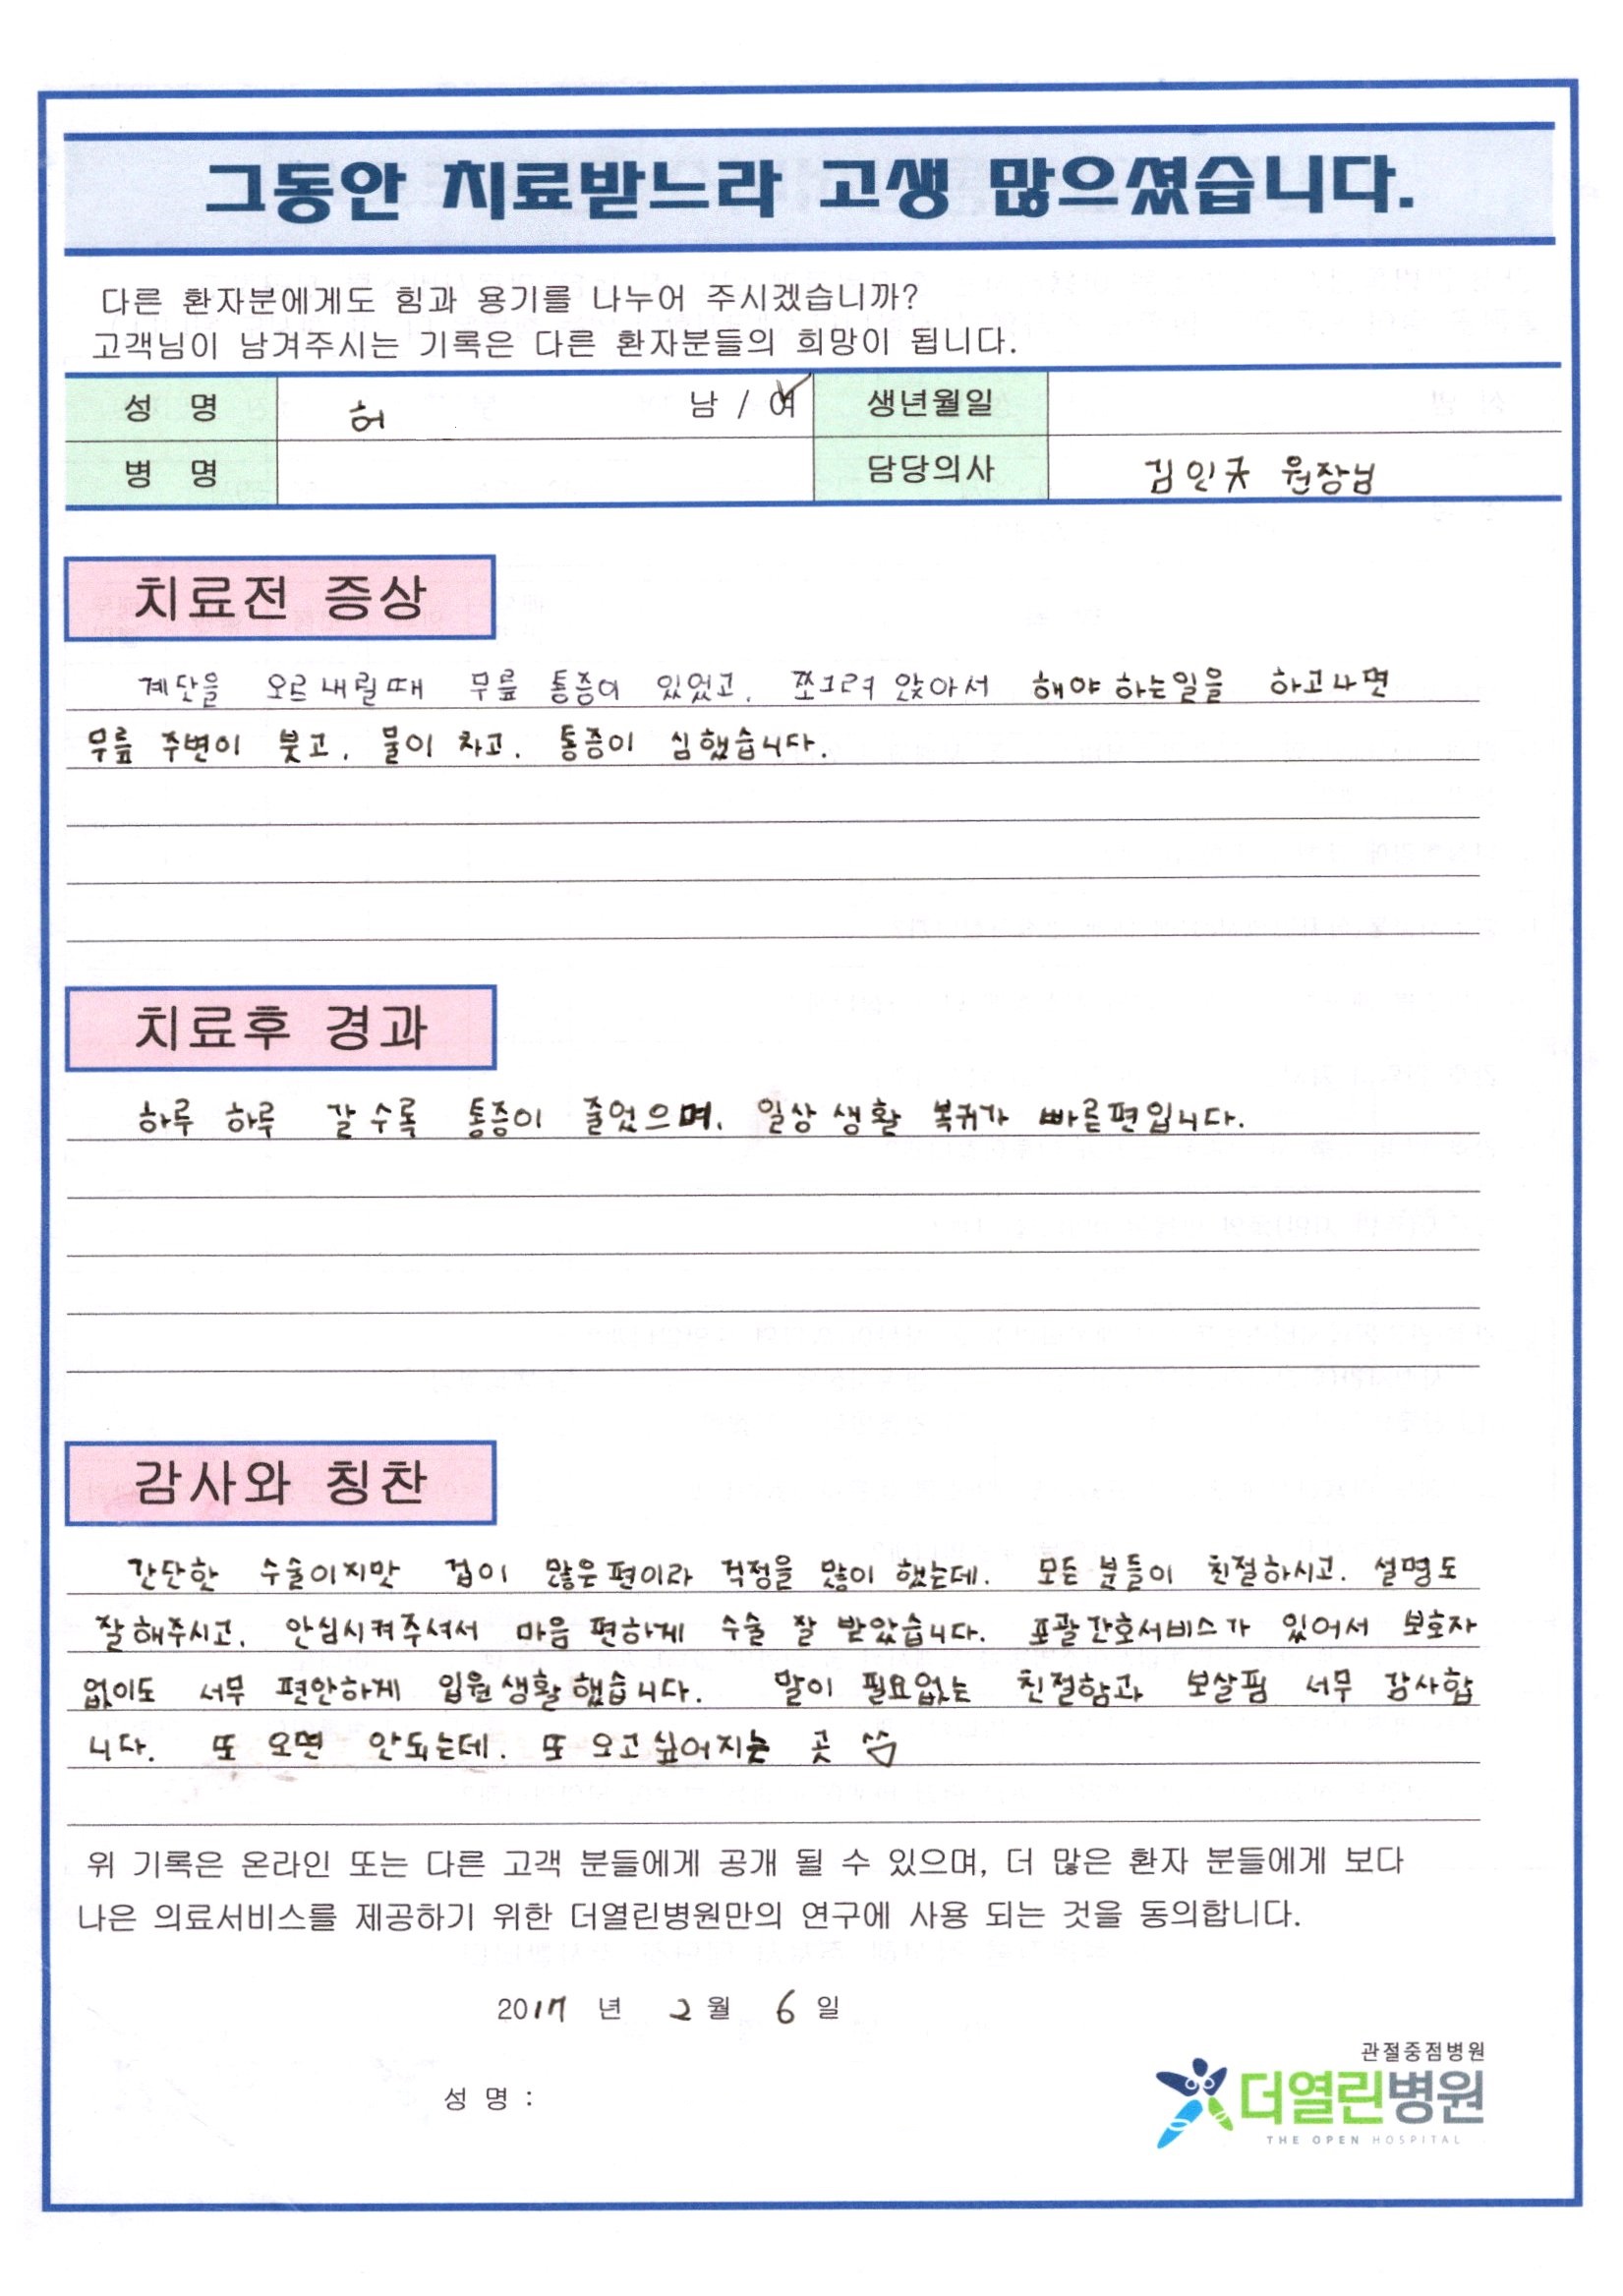 그동안 치료받느라 고생 많으셨습니다.
다른 환자분에게도 힘과 용기를 나누어 주시겠습니까?
고객님이 남겨주시는 기록은 다른 환자분들의 희망이 됩니다.
성 명 허 남 / 여 생년월일
병 명 담당의사 김인규 원장님
치료전 증상
계단을 오르내릴때 무릎 통증이 있었고, 쪼그려 앉아서 해야 하는일을 하고나면
무릎 주변이 붓고, 물이 차고, 통증이 심했습니다.
치료후 경과
하루 하루 갈수록 통증이 줄었으며, 일상생활 복귀가 빠른편입니다.
감사와 칭찬
간단한 수술이지만 겁이 많은편이라 걱정을 많이 했는데. 모든분들이 친절하시고. 설명도
잘해주시고, 안심시켜주셔서 마음 편하게 수술 잘 받았습니다. 포괄간호서비스가 있어서 보호자
없이도 너무 편안하게 입원생활했습니다. 말이 필요없는 친절함과 보살핌 너무 감사합
니다. 또 오면 안되는데. 또 오고싶어지는 곳
위 기록은 온라인 또는 다른 고객 분들에게 공개 될 수 있으며, 더 많은 환자 분들에게 보다
나은 의료서비스를 제공하기 위한 더열린병원만의 연구에 사용 되는 것을 동의합니다.
2017 년 2 월 6 일
관절중점병원
더열린병원
THE OPEN HOSPITAL
성 명 :